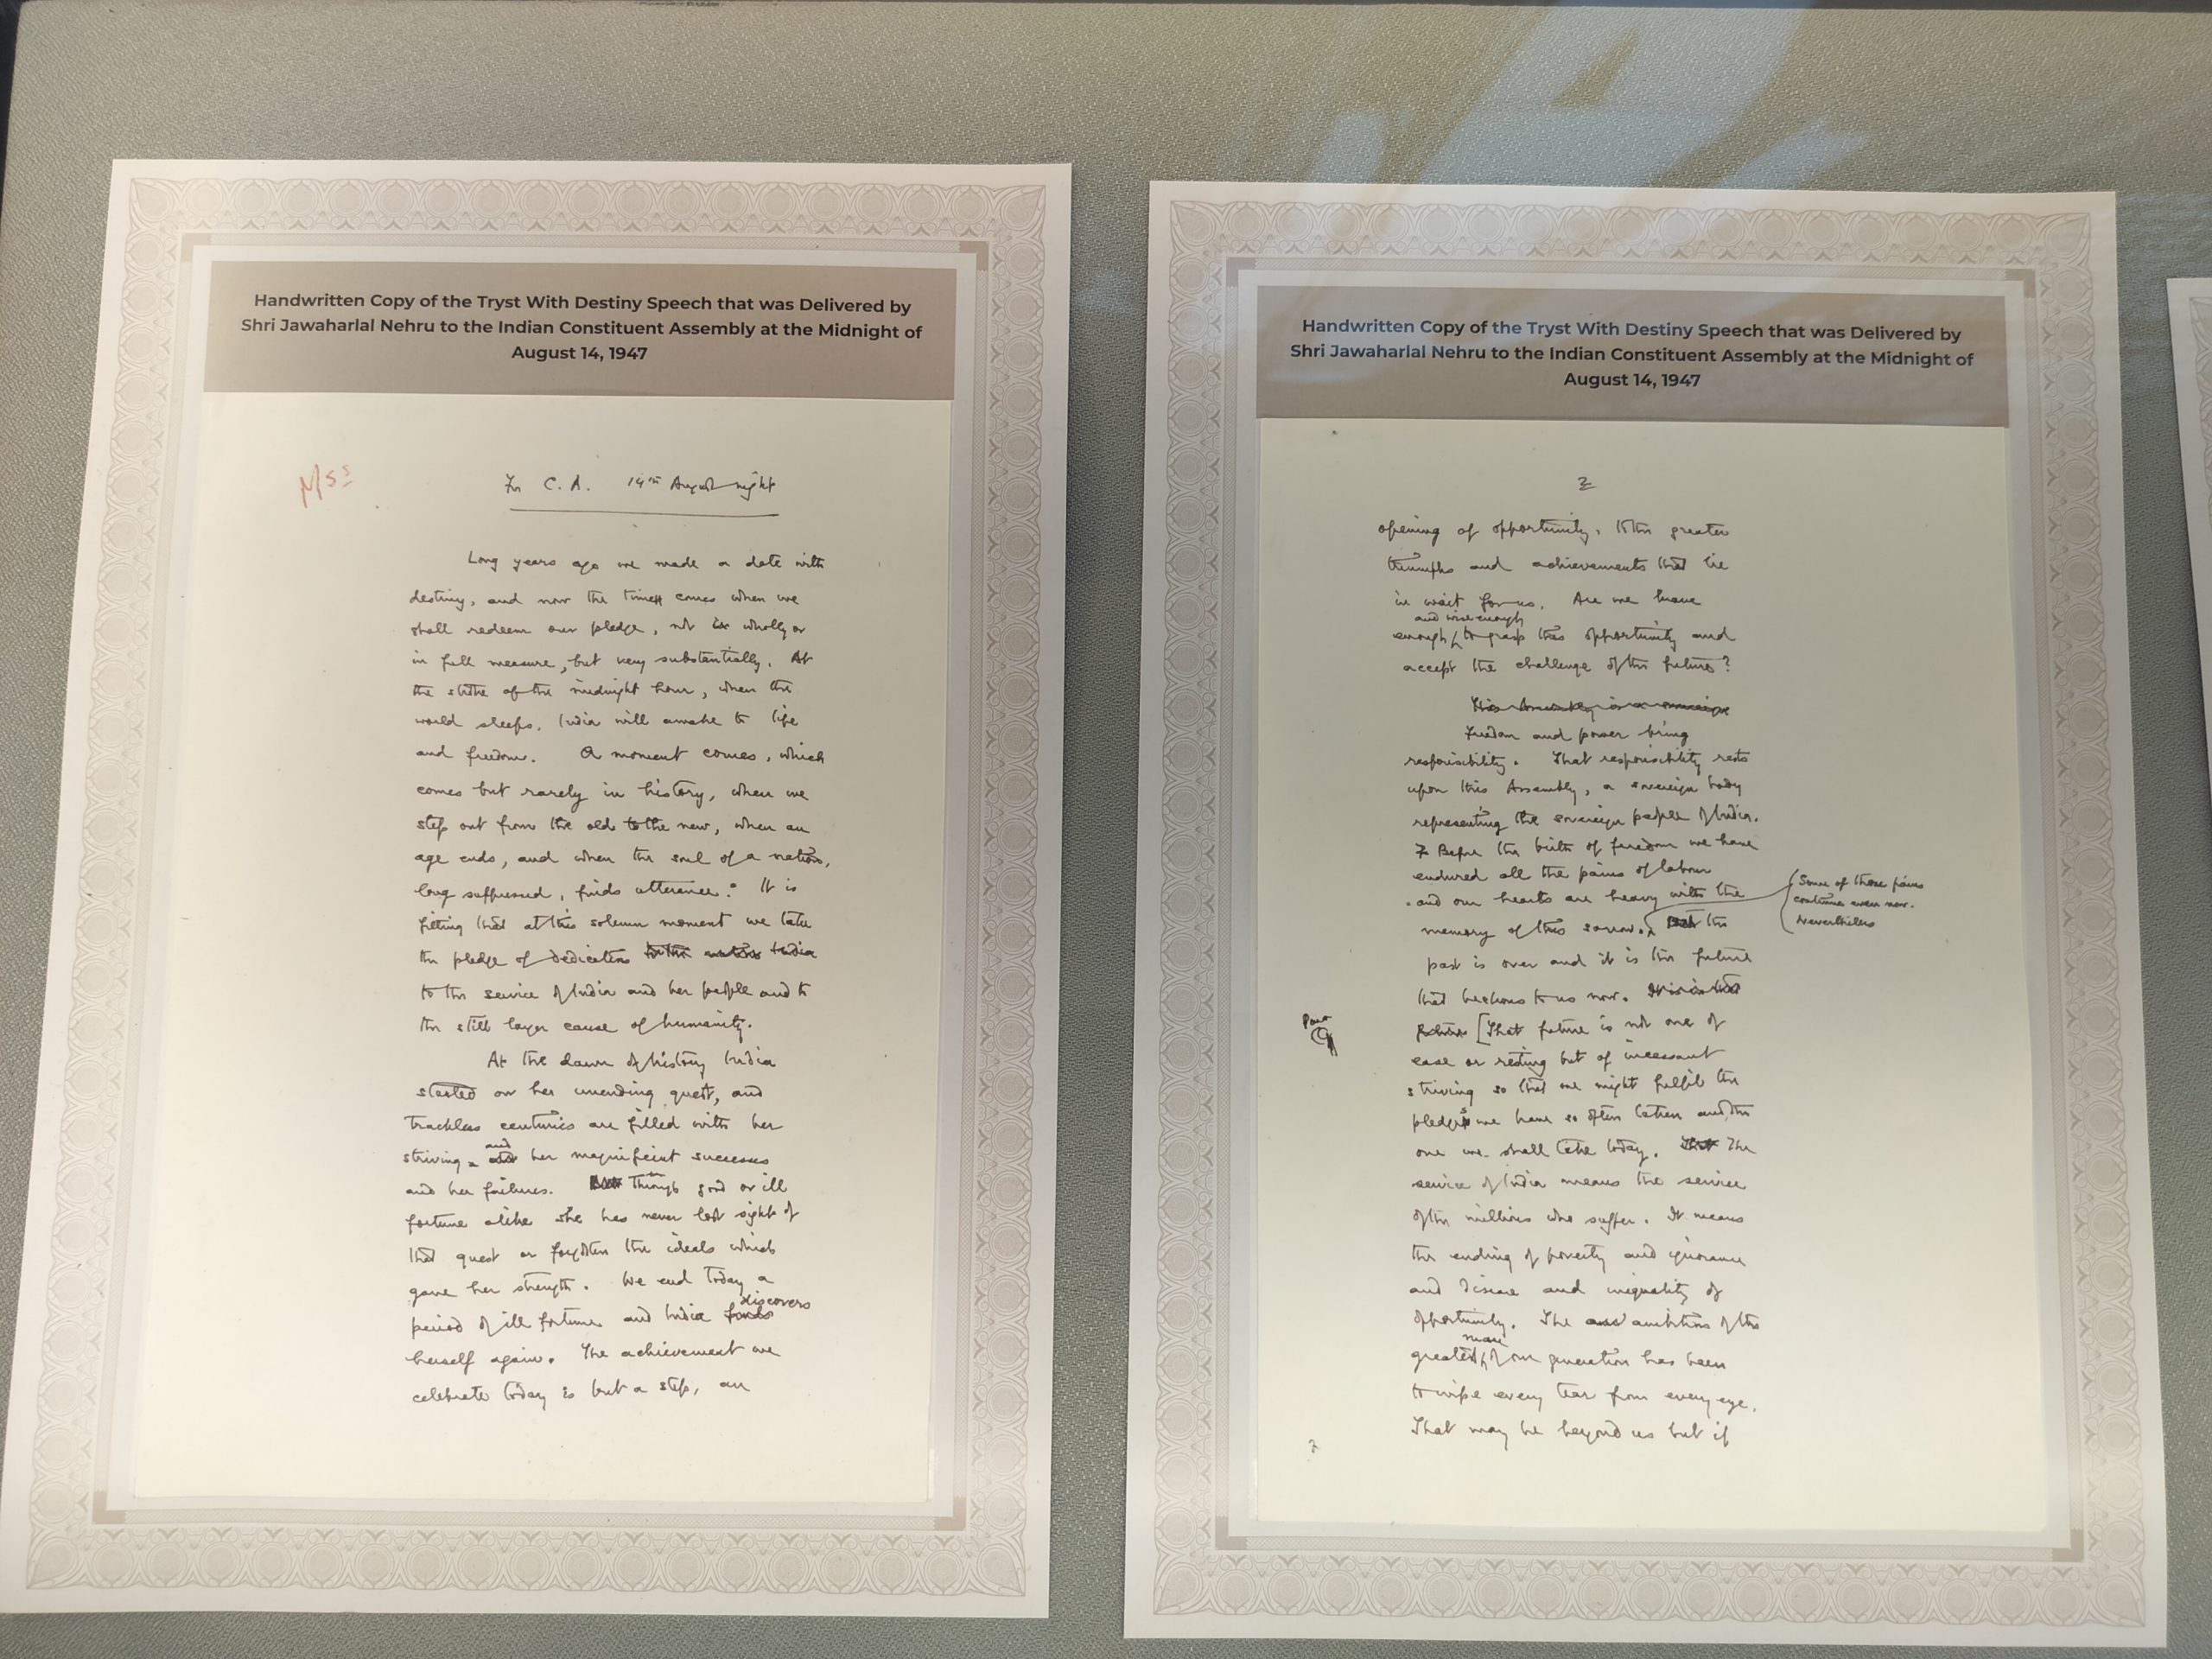 Handwritten Copy of the Tryst With Destiny Speech that was Delivered by
Shri Jawaharlal Nehru to the Indian Constituent Assembly at the Midnight of
August 14, 1947
MSS
For C. A. 14th August night
Long years ago we made a date with
destiny, and now the time comes when we
shall redeem our pledge, not wholly or
in full measure, but very substantially. At
the stroke of the midnight hour, when the
world sleeps, India will awake to life
and freedom. A moment comes, which
comes but rarely in history, when we
step out from the old to the new, when an
age ends, and when the soul of a nation,
long suppressed, finds utterance. It is
fitting that at this solemn moment we take
the pledge of dedication to the nation India
to the service of India and her people and to
the still larger cause of humanity.
At the dawn of history India
started on her unending quest, and
trackless centuries are filled with her
and
striving, her magnificent successes
and her failures. Through good or ill
fortune alike she has never lost sight of
that quest or forgotten the ideals which
gave her strength. We end today a
discovers
period of ill fortune and India finds
herself again. The achievement we
celebrate today is but a step, an
Handwritten Copy of the Tryst With Destiny Speech that was Delivered by
Shri Jawaharlal Nehru to the Indian Constituent Assembly at the Midnight of
August 14, 1947
2
opening of opportunity, to the greater
triumphs and achievements that lie
in wait for us. Are we brave
and wise enough
enough to grasp this opportunity and
accept the challenge of the future?
This Assembly is a sovereign
Freedom and power bring
responsibility. That responsibility rests
upon this Assembly, a sovereign body
representing the sovereign people of India.
Before the birth of freedom we have
endured all the pains of labour
and our hearts are heavy with the
Some of those pains
continue even now.
Nevertheless
memory of this sorrow. the
past is over and it is the future
that beckons to us now. It is in that
Para
future [That future is not one of
ease or resting but of incessant
striving so that we might fulfil the
pledges we have so often taken and the
one we shall take today. The
service of India means the service
of the millions who suffer. It means
the ending of poverty and ignorance
and disease and inequality of
opportunity. The ambition of the
man
greatest of our generation has been
to wipe every tear from every eye.
That may be beyond us but if